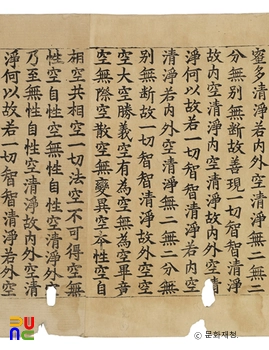 蜜多清淨若內外空清淨無二無二
分無別無斷故善現一切智智清淨
故內空清淨內空清淨故內外空清
淨何以故若一切智智清淨若內空
清淨若內外空清淨無二無二分無
別無斷故一切智智清淨故外空空
空大空勝義空有為空無為空畢竟
空無際空散空無變異空本性空自
相空共相空一切法空不可得空無
性空自性空無性自性空清淨外空
乃至無性自性空清淨故內外空清
淨何以故若一切智智清淨若外空
ⓒ 문화재청